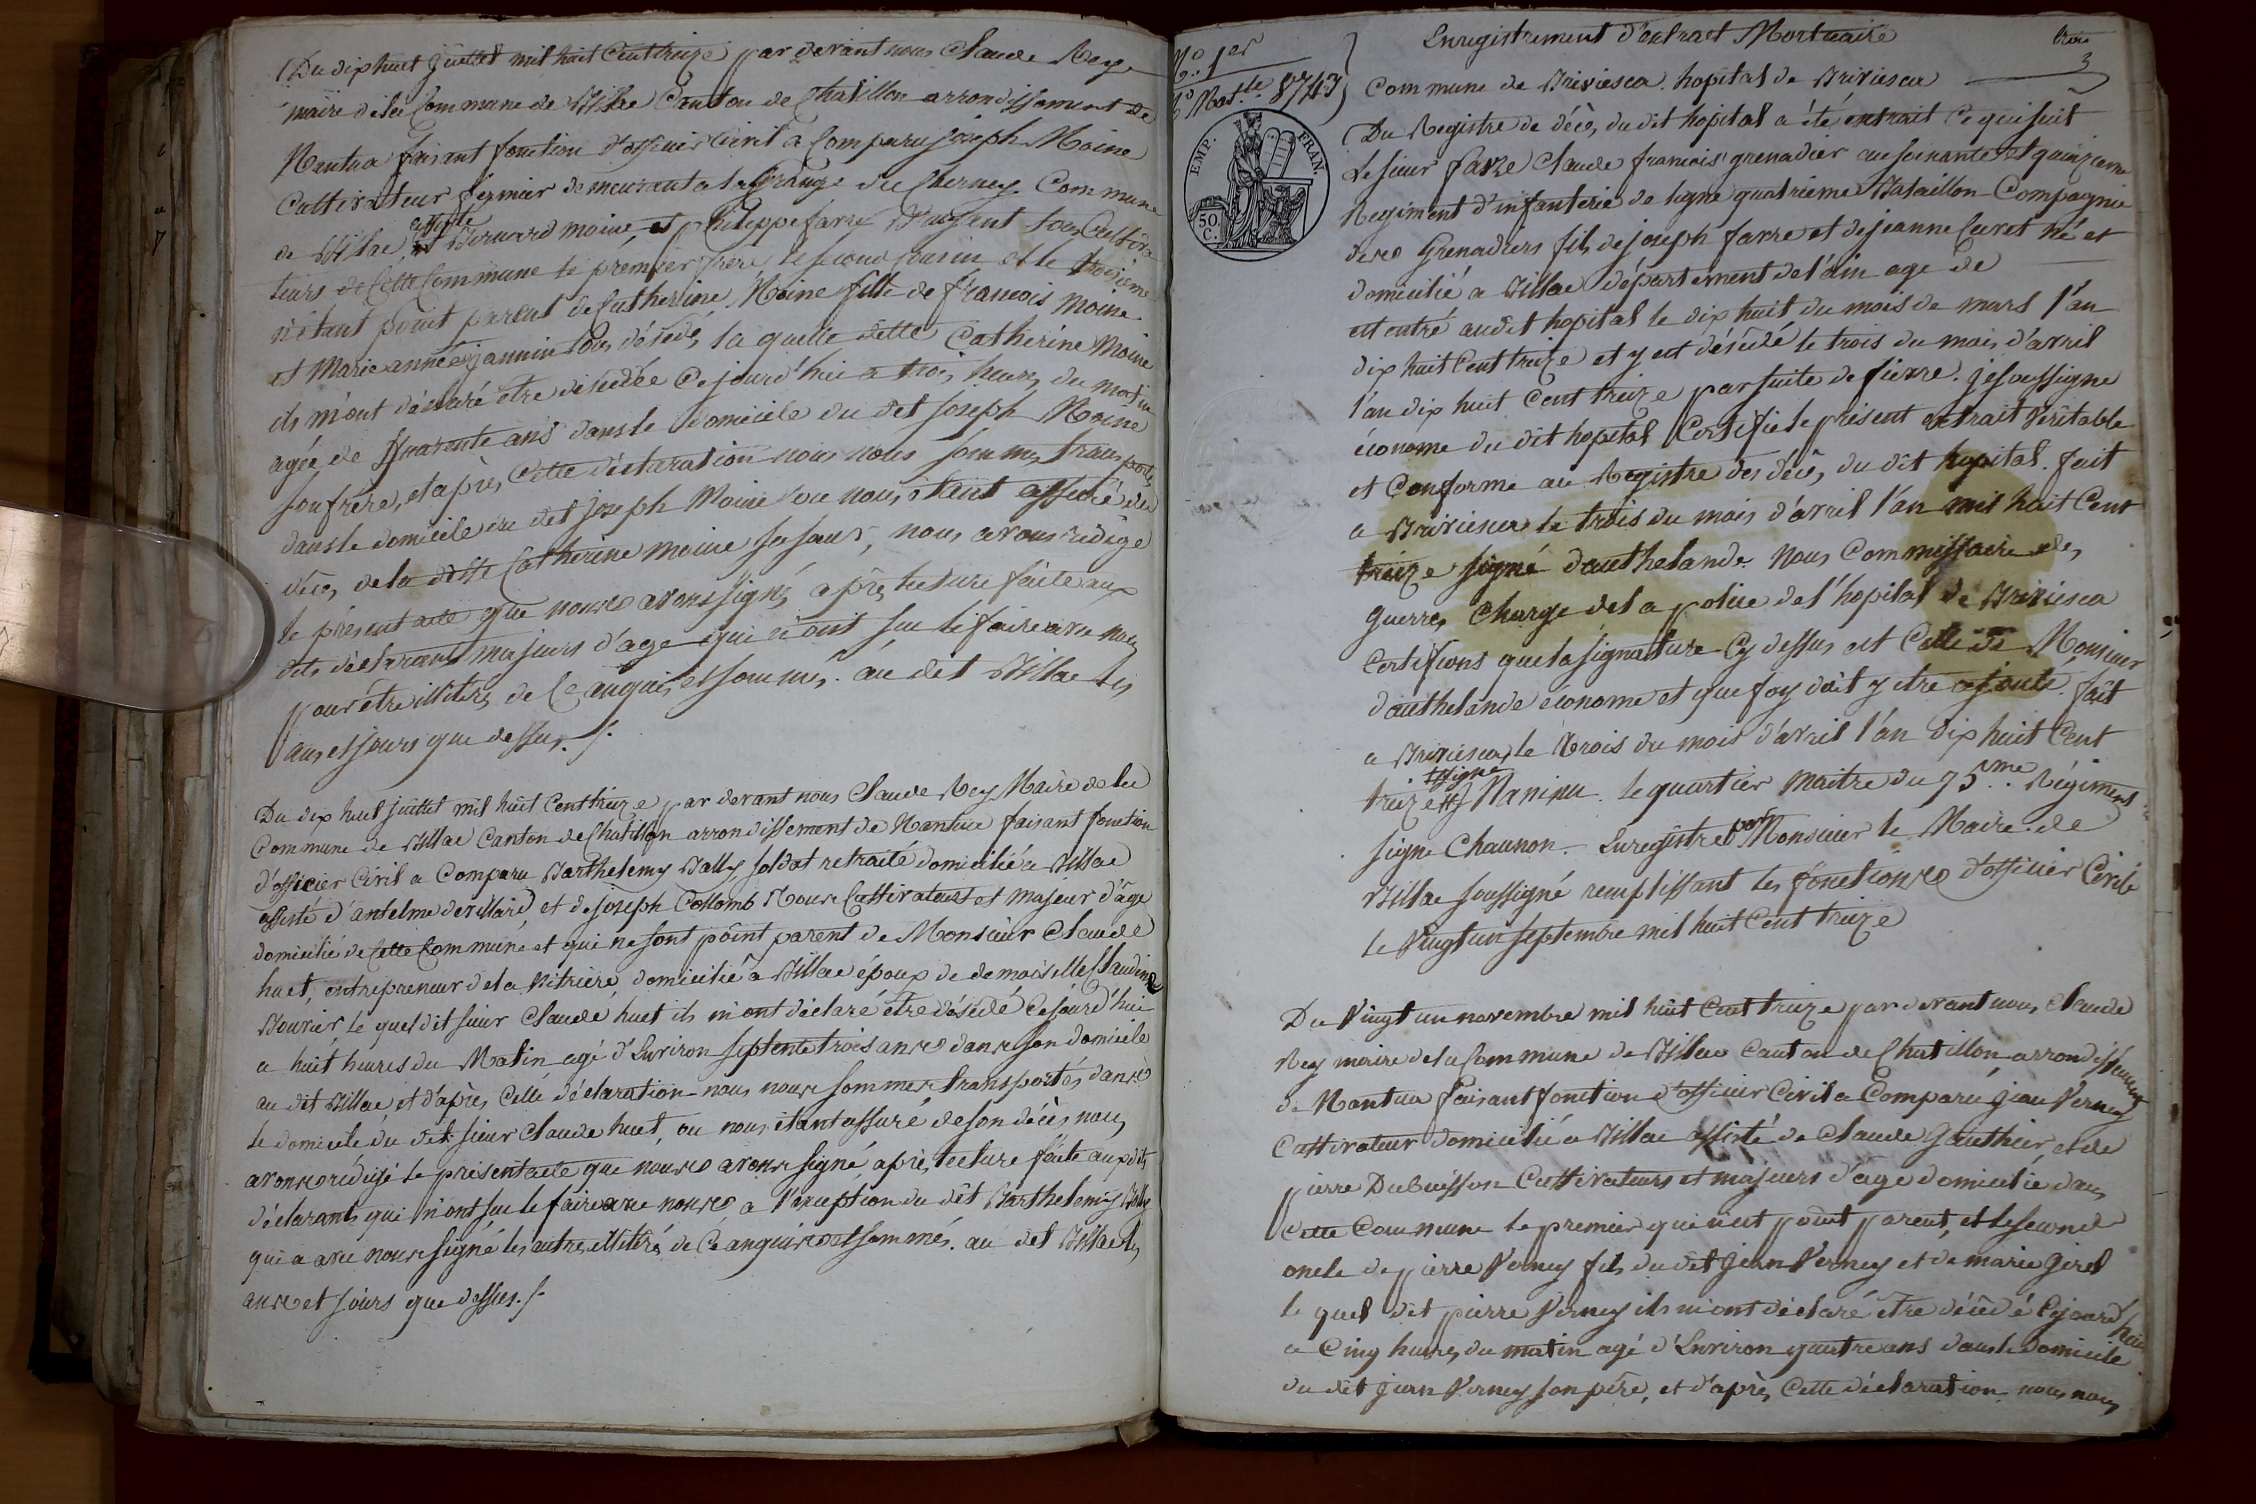 Du dix huit Juillet mil huit Cent treize par devant nous Claude Rey
maire de la Commune de Billiae Canton de Chatillon arrondissement De
Nantua faisant fonction d'officier Civil a Comparu Joseph Moine
Cultivateur fermier demeurant a la Grange du Cherney Commune
de Billiae, assisté de Bernard moine, et Philippe farre D'ussent tous Cultiva
teurs de Cette Commune le premier frère le second Cousin et le troisieme
n'étant point parent de Catherine Moine fille de françois Moine
et Marie anne jannin tous désédé, la quelle ditte Catherine Moine
ils m'ont déclaré être désédée Cejourd'hui a trois heures du matin
agée de Quarente ans dans le domicile du dit Joseph Moine
son frère, et après Cette déclaration nous nous sommes transportés
dans le domicile du dit joseph Moine ou nous étant assuré du
décès de la ditte Catherine moine sa sœur, nous avons rédigé
le présent acte que nous avons signé après lecture faite aux
dits déclarants majeurs d'age qui n'ont su le faire avec nous
pour être illitérés de Ce enquis et sommés. au dit Billiae les
ans et jours que dessus. /.
Du dix huit juillet mil huit Cent treize par devant nous Claude Rey Maire de la
Commune de Billiae Canton de Chatillon arrondissement de Nantua faisant fonction
d'officier Civil a Comparu Barthelemy Bally soldat retraité domicilié a Billiae
assisté d'antelme devillard et de joseph Collomb tous Cultivateurs et majeur d'âge
domicilié de Cette Commune et qui ne sont point parent de Monsieur Claude
huet, entrepreneur de la Vitriere domicilié a Billiae époux de demoiselle Claudine
Bouvier, le quel dit sieur Claude huet ils m'ont déclaré être désédé Cejourd'hui
a huit heures du Matin agé d'Environ septente trois ans dans son domicile
au dit Billiae, et d'après Cette déclaration nous nous sommes transportés dans
le domicile du dit sieur Claude huet, ou nous étant assuré de son décès nous
avons rédigé le présent acte que nous avons signé après lecture faite aux dits
déclarants qui n'ont su le faire avec nous a l'exception du dit Barthelemy Bally
qui a avec nous signé les autres illitérés de Ce enquis et sommés. au dit Billiae les
ans et jours que dessus. /.
No. 1er
No Mat.le 8743
Enregistrement d'extrait Mortuaire
trois
3
Commune de Briviesca hopital de Briviesca
EMP. FRAN.
50 C.
Du Registre de décès du dit hopital a été extrait Ce qui suit
Le sieur farre Claude francois grenadier au soixante et quinzieme
Regiment d'infanterie de ligne quatrieme Bataillon Compagnie
des Grenadiers fils de joseph farre et de jeanne Curet né et
domicilié a Billiae département de l'ain agé de
est entré au dit hopital le dix huit du mois de mars l'an
dix huit Cent treize et y est désédé le trois du mois d'avril
l'an dix huit Cent treize par suite de fievre. je soussigne
économe du dit hopital Certifie le présent extrait Véritable
et Conforme au Registre des décès du dit hopital. fait
a Briviesca le trois du mois d'avril l'an mil huit Cent
treize signé dauthelande. Nous Commissaire des
guerres Charge de la police de l'hopital de Briviesca
Certifions que la signature Cy dessus est Celle de Monsieur
dauthelande économe et que foy doit y être ajouté. fait
a Briviesca le trois du mois d'avril l'an dix huit Cent
treize signé Naninu. le quartier maitre du 75me. Régiment
signe Chaunon. Enregistré par Monsieur le Maire de
Billiae soussigné remplissant les fonctions d'officier Civil
le Vingt un septembre mil huit Cent treize
Du Vingt un novembre mil huit Cent treize par devant nous Claude
Rey maire de la Commune de Billiae Canton de Chatillon arrondissement
de Nantua faisant fonction d'officier Civil a Comparu jean Verney
Cultivateur domicilié a Billiae assisté de Claude Gauthier, et de
pierre Dubuisson Cultivateurs et majeurs d'age domicilié dans
Cette Commune le premier qui n'est point parent, et le second
oncle de pierre Verney fils du dit jean Verney et de marie Girel
le quel dit pierre Verney ils m'ont déclaré être décédé Cejourd'hui
a Cinq heures du matin agé d'Environ quatre ans dans le domicile
du dit jean Verney son père, et d'après Cette déclaration nous nous